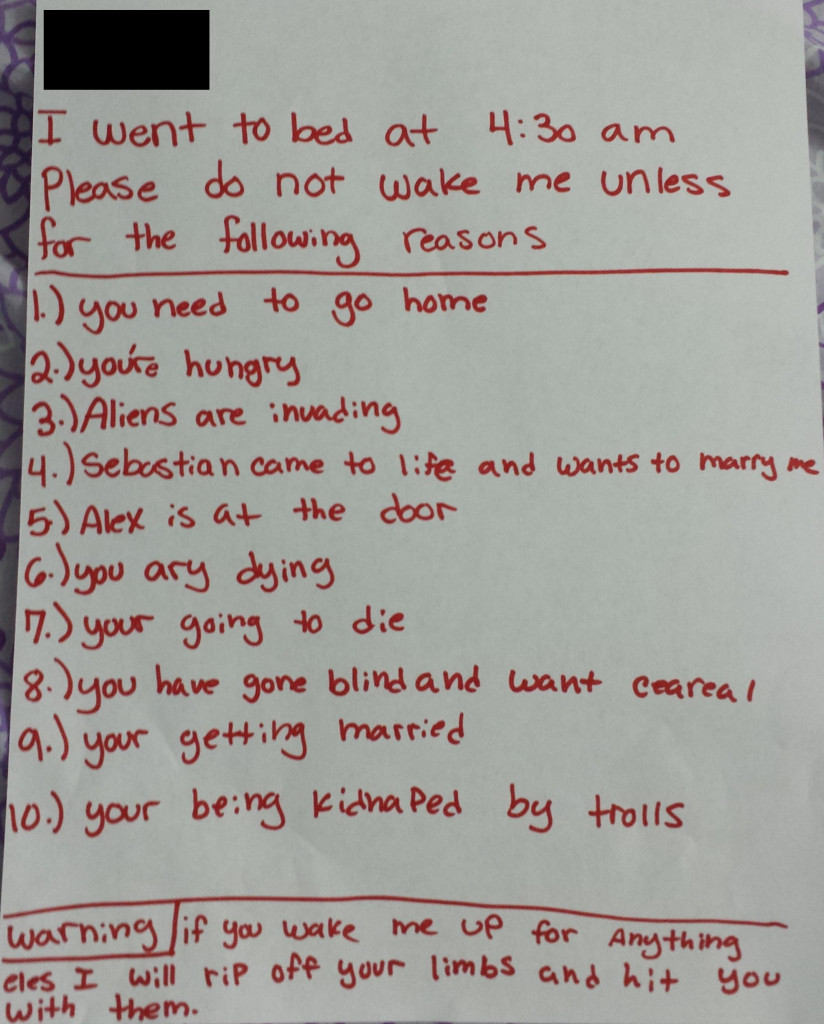 I went to bed at 4:30 am
Please do not wake me unless
for the following reasons
1.) you need to go home
2.) you're hungry
3.) Aliens are invading
4.) Sebastian came to life and wants to marry me
5) Alex is at the door
6.) you ary dying
7.) your going to die
8.) you have gone blind and want ceareal
9.) your getting married
10.) your being kidnaped by trolls
warning if you wake me up for Anything
eles I will rip off your limbs and hit you
with them.